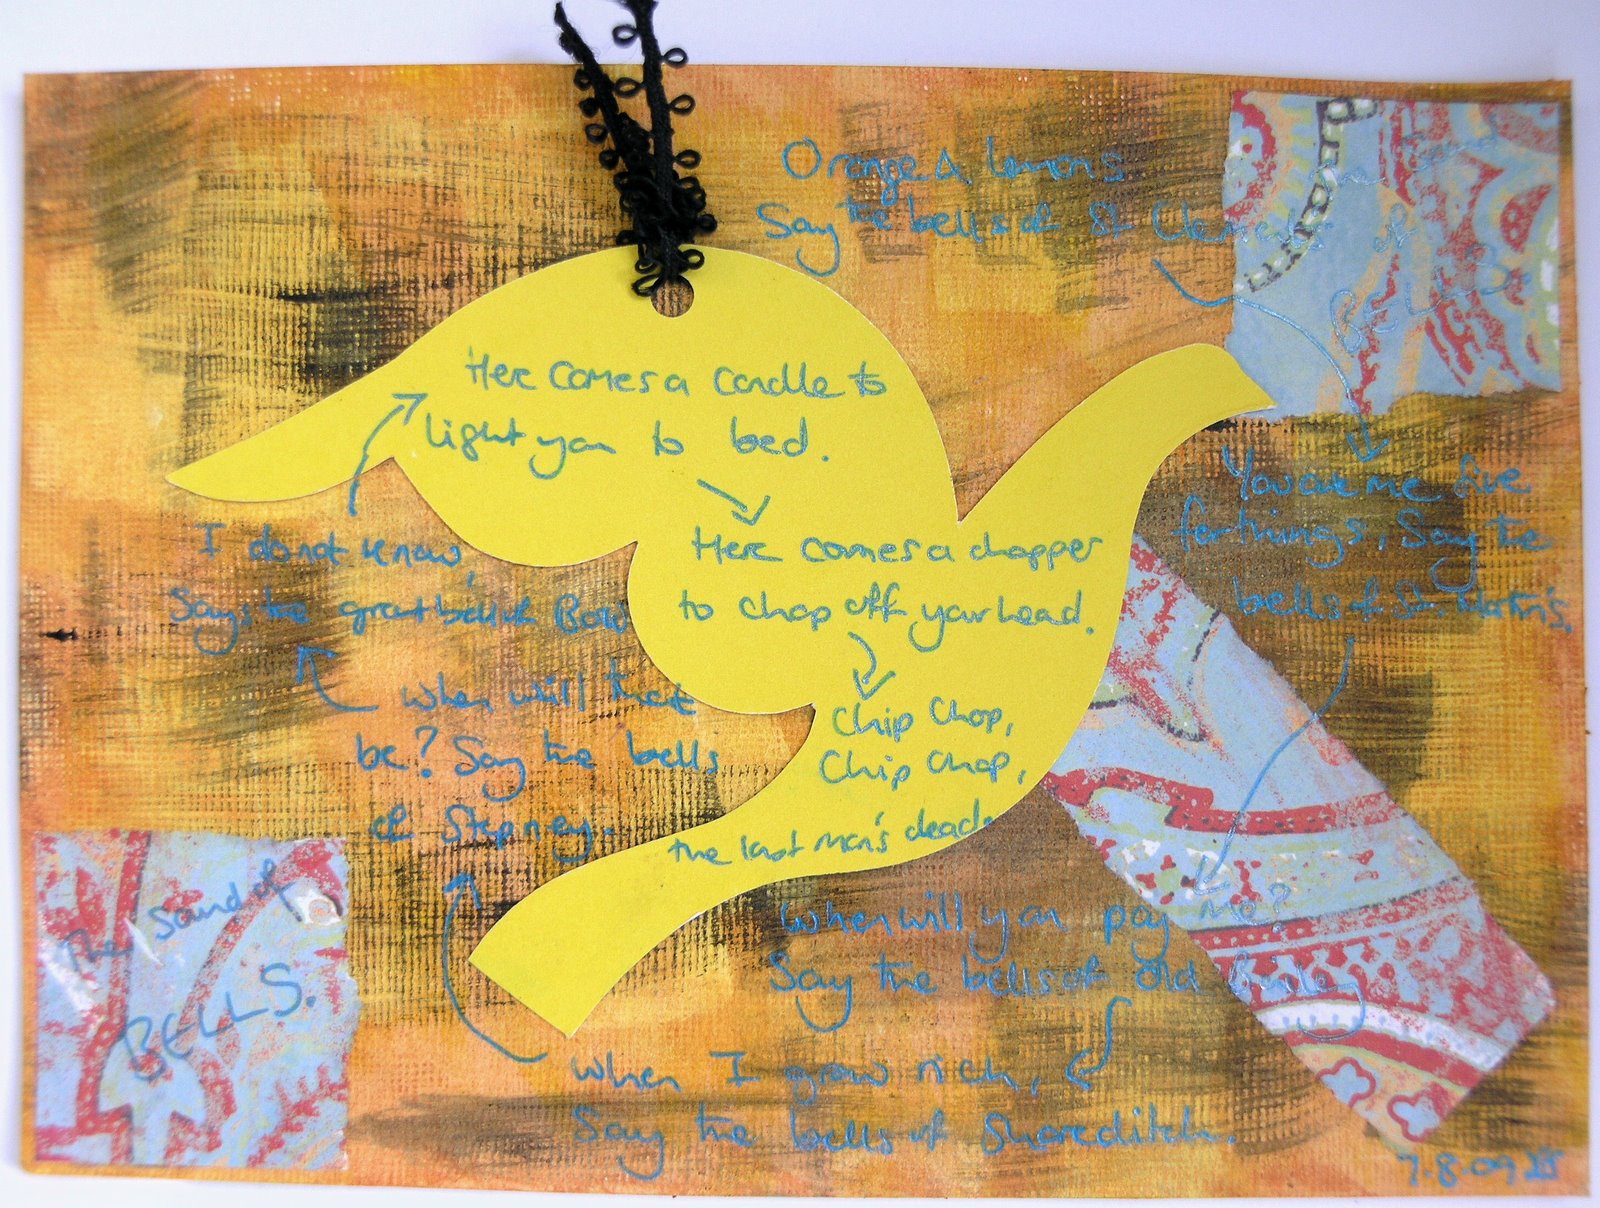 Orange & lemons
Say the bells of St Clements
The Sound of
BELLS
You owe me five
farthings, Say the
bells of St Martin's.
When will you pay me?
Say the bells of Old Bailey
When I grow rich,
Say the bells of Shoreditch.
When will that
be? Say the bells
of Stepney.
I do not know,
Says the great bell of Bow
Here comes a candle to
light you to bed.
Here comes a chopper
to chop off your head.
Chip Chop,
Chip Chop,
the last man's dead.
The Sound of
BELLS.
7-8-09